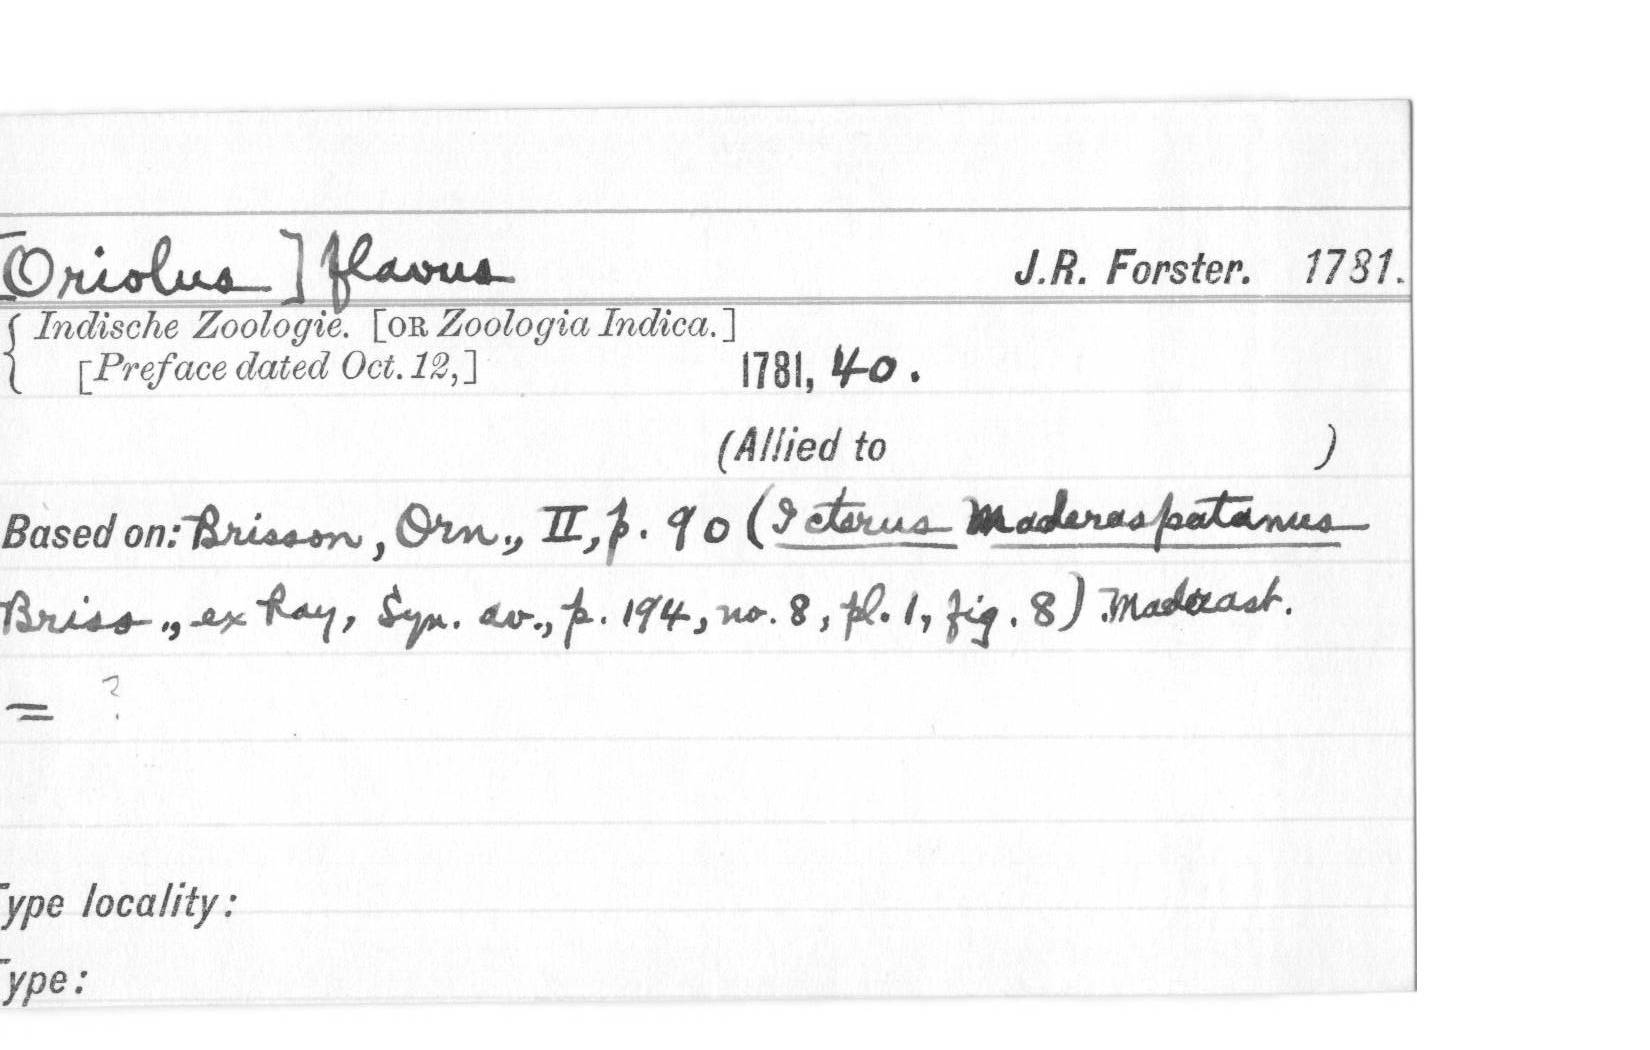 [Oriolus] flavus J.R. Forster. 1781.
{ Indische Zoologie. [OR Zoologia Indica.]
[Preface dated Oct. 12,] 1781, 40.
(Allied to )
Based on: Brisson, Orn., II, p. 90 (Icterus Maderaspatanus
Briss., ex Ray, Syn. av., p. 194, no. 8, pl. 1, fig. 8) Maderast.
= ?
Type locality:
Type: